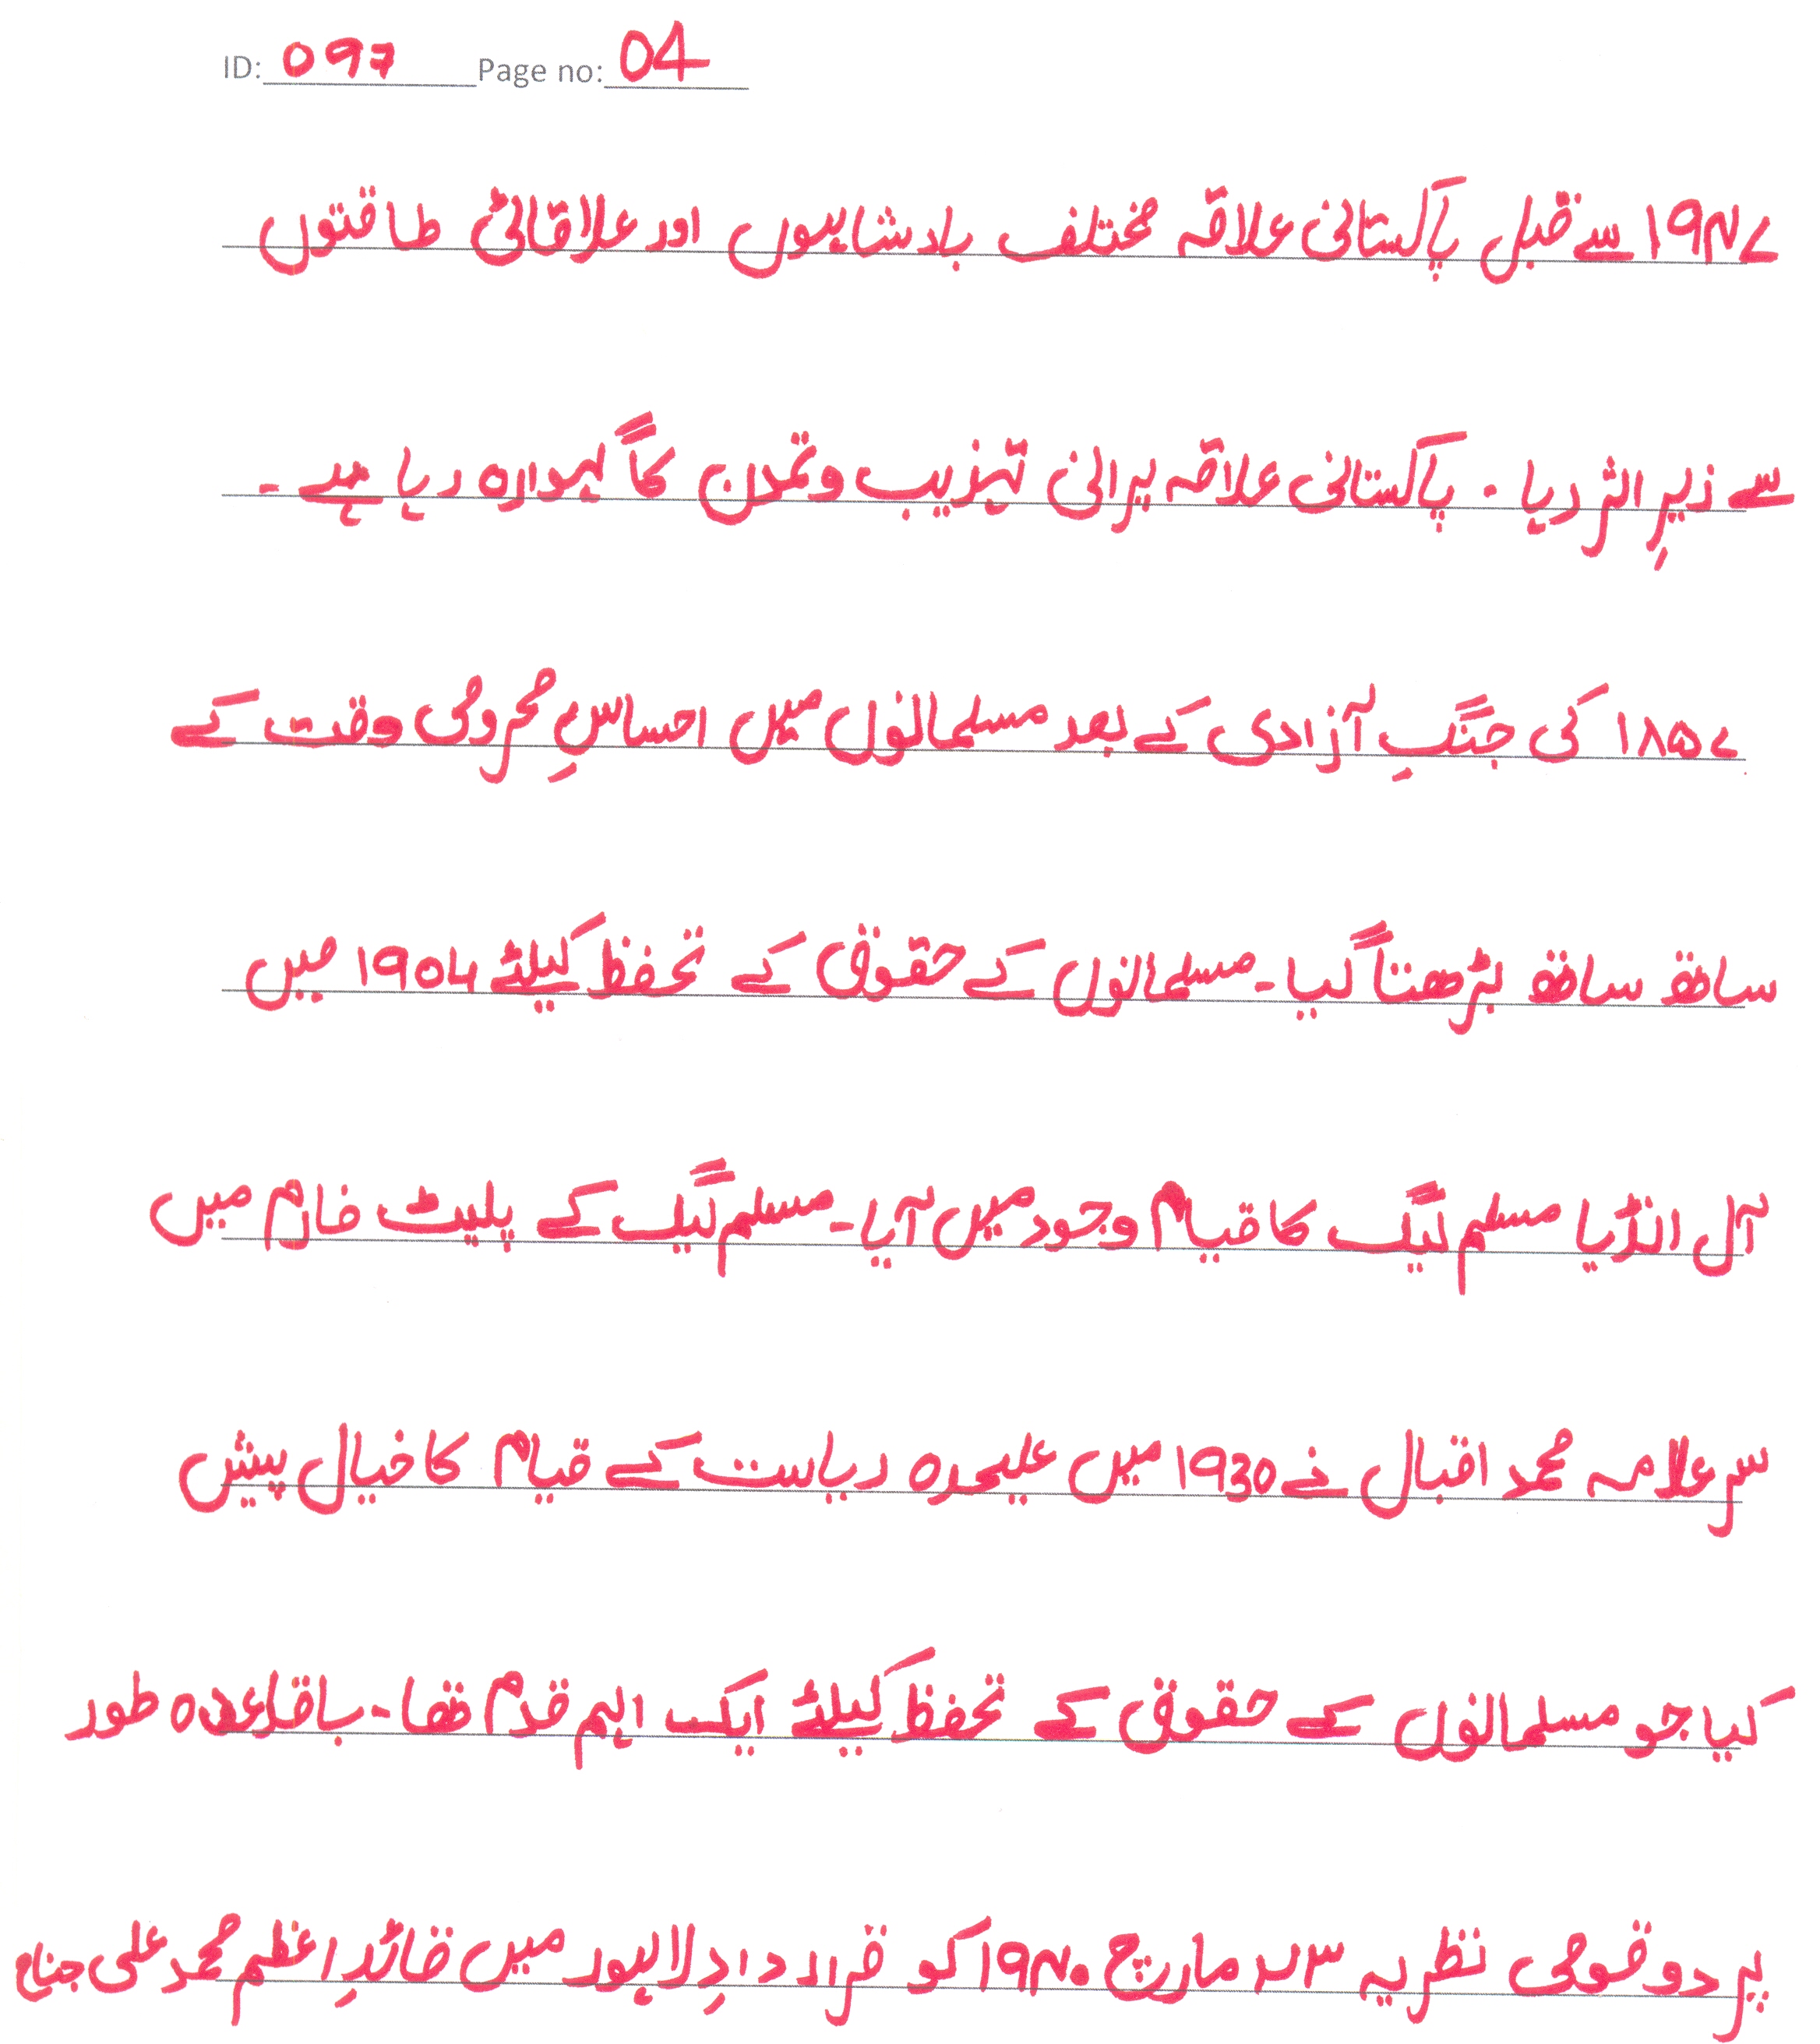 ID: 097 Page no: 04
۱۹۴۷ سے قبل پاکستانی علاقہ مختلف بادشاہوں اور علاقائی طاقتوں
سے زیرِ اثر رہا۔ پاکستانی علاقہ پرانی تہزیب وتمدن کا گہوارہ رہا ہے۔
۱۸۵۷ کی جنگِ آزادی کے بعد مسلمانوں میں احساسِ محرومی وقت کے
ساتھ ساتھ بڑھتا گیا۔ مسلمانوں کے حقوق کے تحفظ کیلئے ۱۹۰۶ میں
آل انڈیا مسلم لیگ کا قیام وجود میں آیا۔ مسلم لیگ کے پلیٹ فارم میں
سر علامہ محمد اقبال نے 1930 میں علیحدہ ریاست کے قیام کا خیال پیش
کیا جو مسلمانوں کے حقوق کے تحفظ کیلئے ایک اہم قدم تھا۔ باقاعدہ طور
پر دو قومی نظریہ ۲۳ مارچ ۱۹۴۰ کو قرار دادِ لاہور میں قائدِ اعظم محمد علی جناح